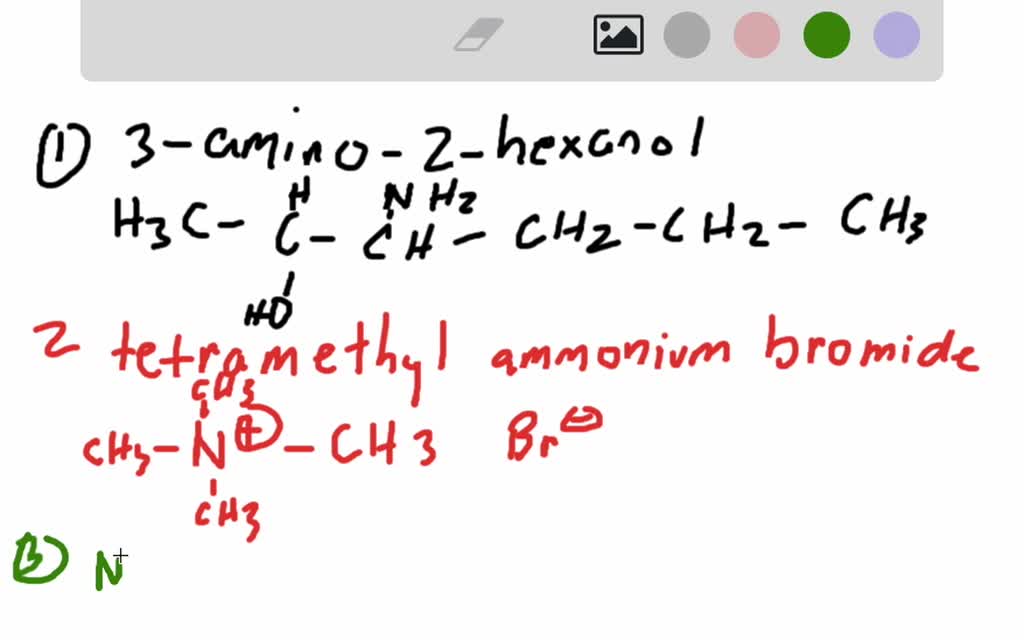 ① 3-amino-2-hexanol
H NH2
H3C- C- CH - CH2-CH2- CH3
HO
2 tetramethyl ammonium bromide
CH3
CH3-N⊕-CH3 Br⊖
CH3
③ N